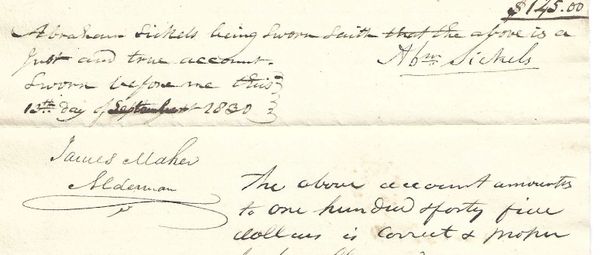 $145.00
Abraham Sickels being Sworn Saith that the above is a
Just and true account.
Abm Sickels
Sworn before me this
13th day of September 1830
James Maher
Alderman
The above account amounts
to one hundred & forty five
dollars is correct & proper